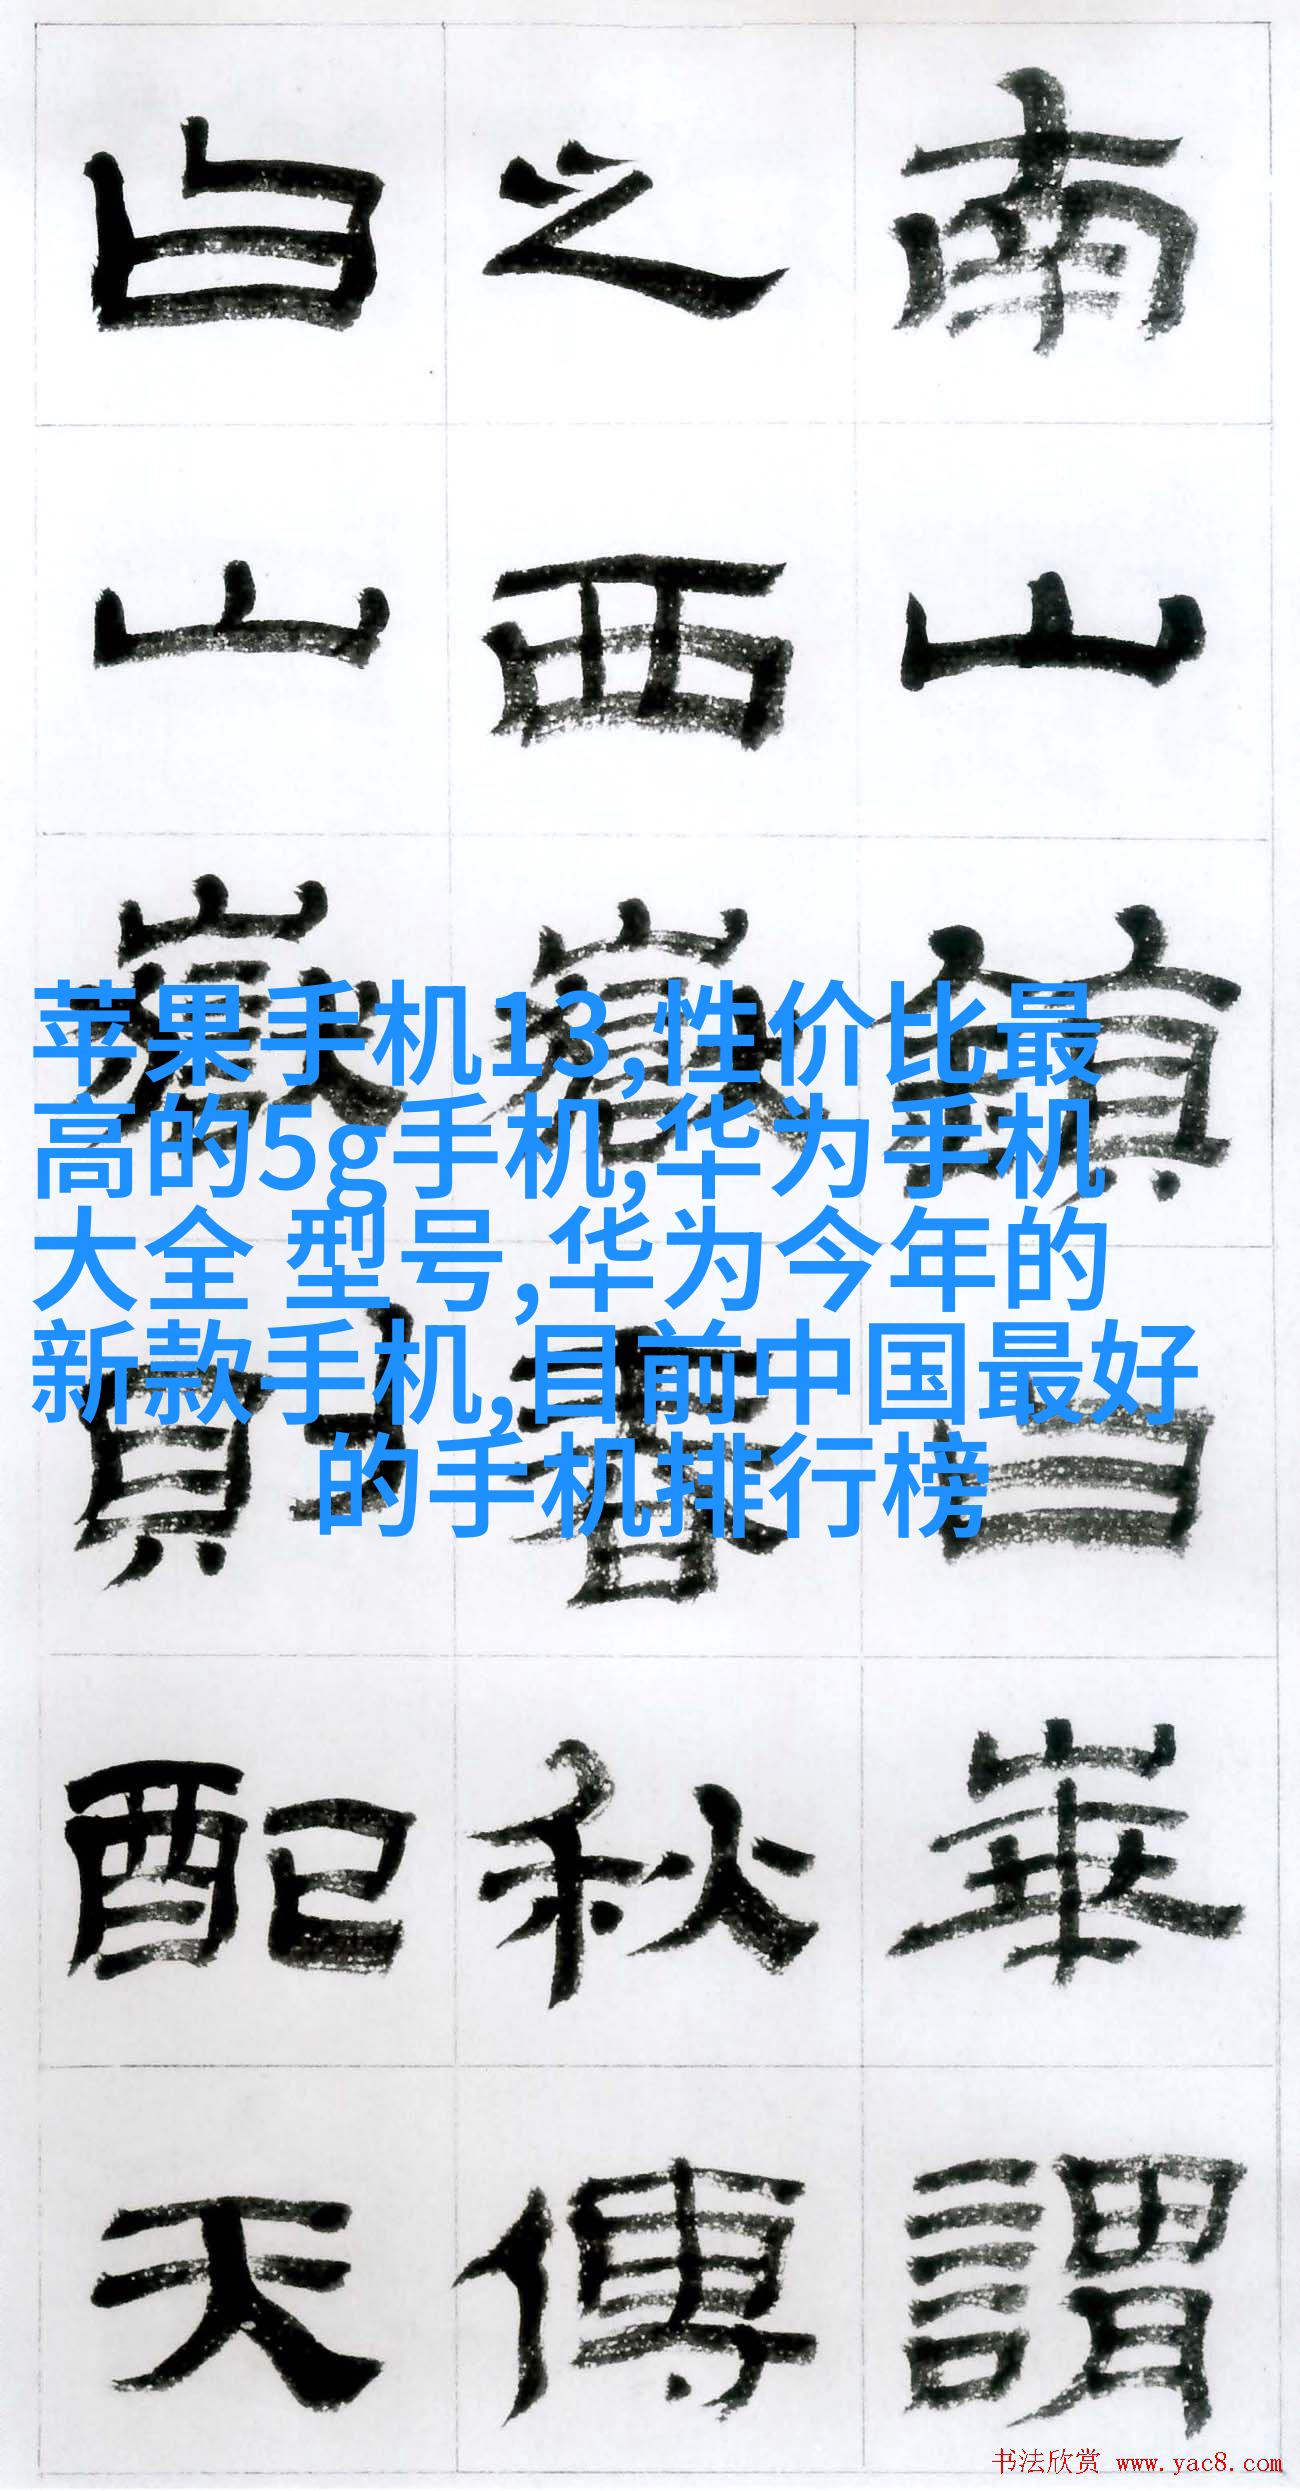 南山鎮曰華謂
之西嶽春秋傳
曰山嶽則配天
苹果手机13,性价比最
高的5g手机,华为手机
大全 型号,华为今年的
新款手机,目前中国最好
的手机排行榜
书法欣赏 www.yac8.com